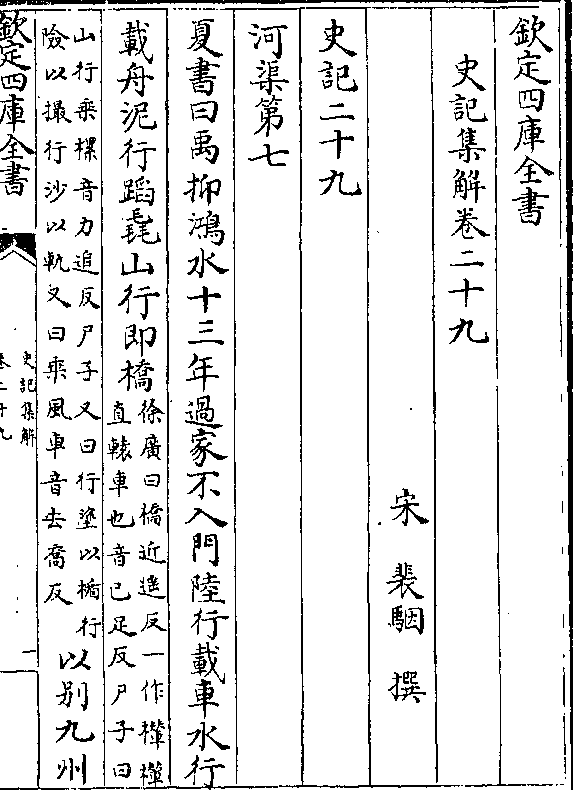 欽定四庫全書
史記集解卷二十九
宋 裴駰 撰
史記二十九
河渠第七
夏書曰禹抑鴻水十三年過家不入門陸行載車水行
載舟泥行蹈毳山行即橋
徐廣曰橋近遙反一作檋檋
直轅車也音已足反尸子曰
山行乘樏音力追反尸子又曰行塗以楯行
險以撮行沙以軌又曰乘風車音去喬反
以别九州
欽定四庫全書
史記集解
卷二十九
一